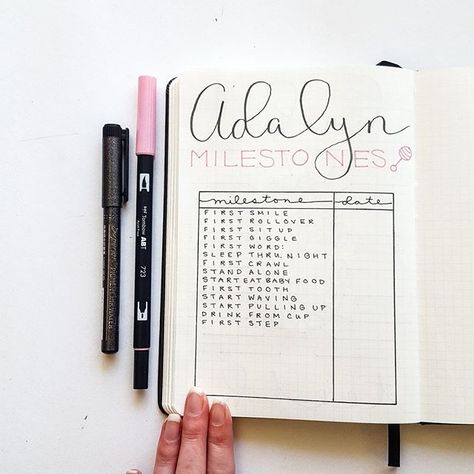 Adalyn
MILESTONES
milestone date
FIRST SMILE
FIRST ROLLOVER
FIRST SIT UP
FIRST GIGGLE
FIRST WORD:
SLEEP THRU NIGHT
FIRST CRAWL
STAND ALONE
START EAT BABY FOOD
FIRST TOOTH
START WAVING
START PULLING UP
DRINK FROM CUP
FIRST STEP
Tombow ABT
723